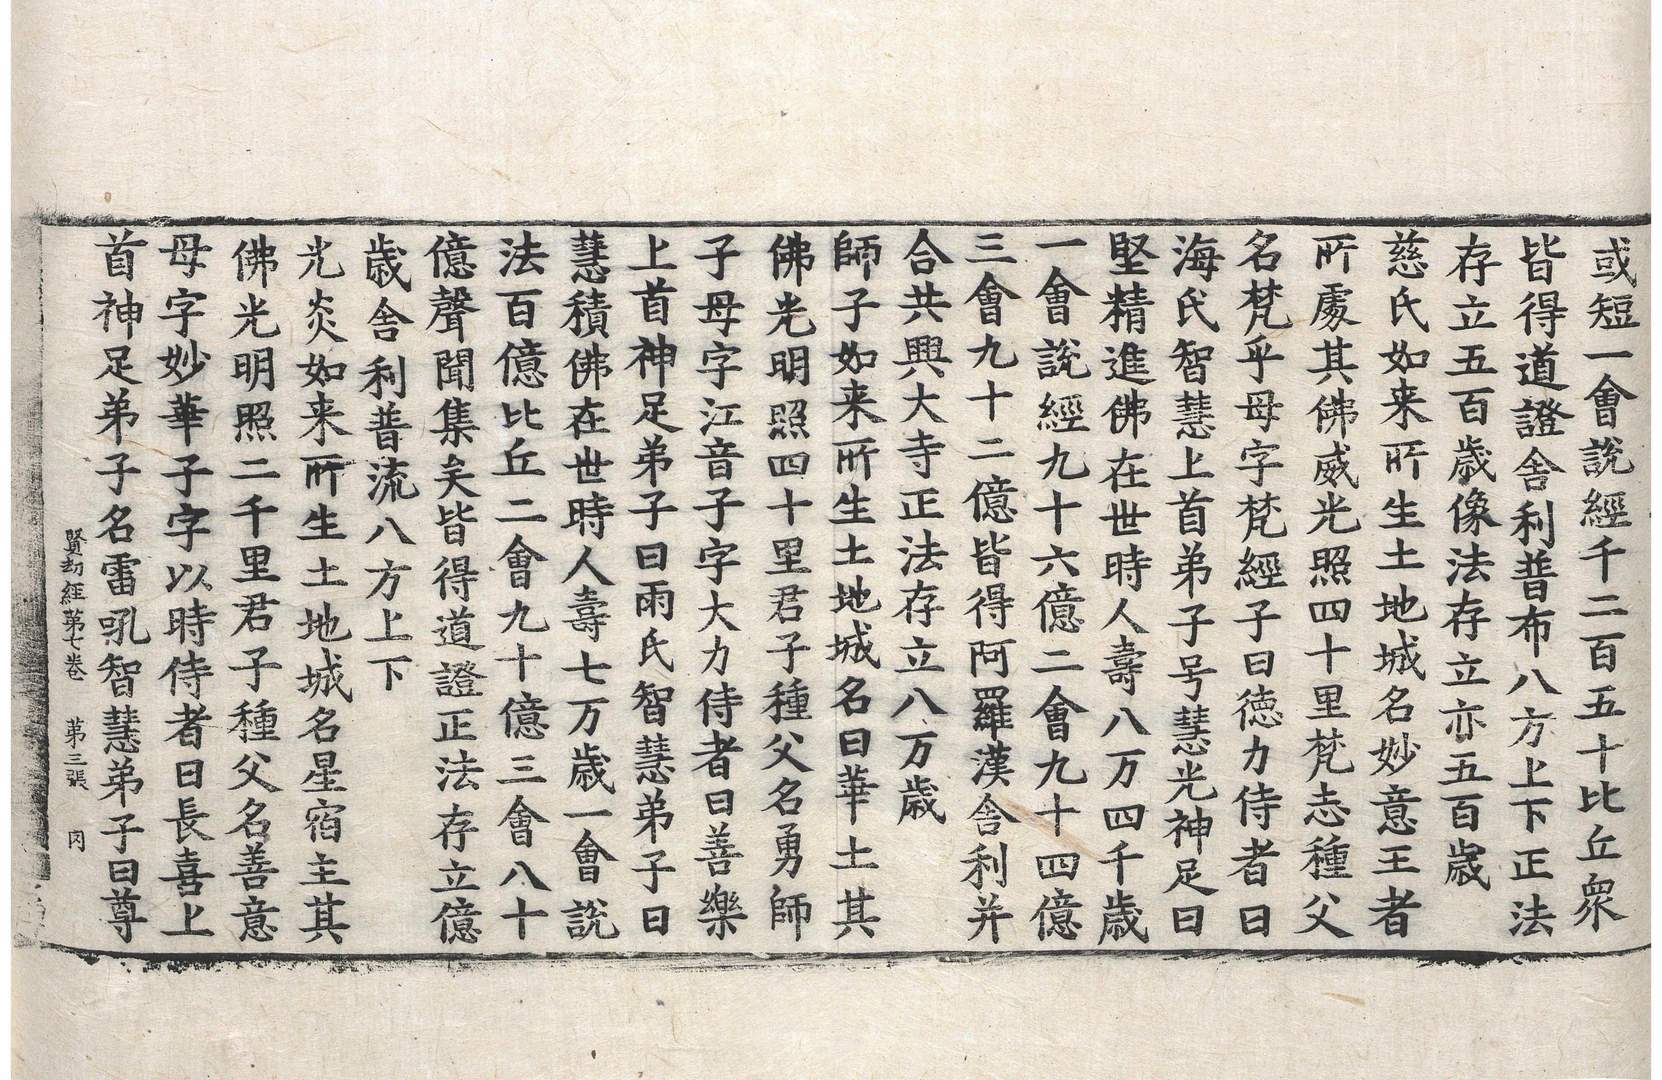 或短一會說經千二百五十比丘眾
皆得道證舍利普布八方上下正法
存立五百歲像法存立亦五百歲
慈氏如来所生土地城名妙意王者
所處其佛威光照四十里梵志種父
名梵乎母字梵經子曰德力侍者曰
海氏智慧上首弟子号慧光神足曰
堅精進佛在世時人壽八万四千歲
一會說經九十六億二會九十四億
三會九十二億皆得阿羅漢舍利并
合共興大寺正法存立八万歲
師子如来所生土地城名曰華土其
佛光明照四十里君子種父名勇師
子母字江音子字大力侍者曰善樂
上首神足弟子曰雨氏智慧弟子曰
慧積佛在世時人壽七万歲一會說
法百億比丘二會九十億三會八十
億聲聞集矣皆得道證正法存立億
歲舍利普流八方上下
光炎如来所生土地城名星宿主其
佛光明照二千里君子種父名善意
母字妙華子字以時侍者曰長喜上
首神足弟子名雷吼智慧弟子曰尊
賢劫經第七卷 第三張